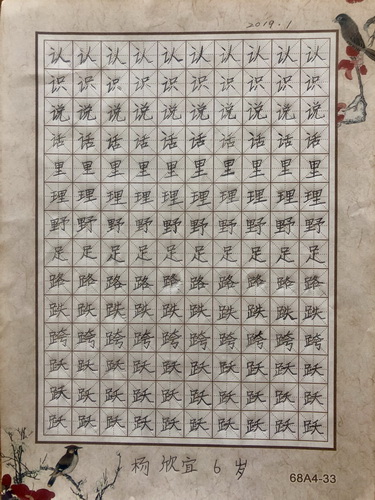 2019.1
认认认认认认认认认认
识识识识识识识识识识
说说说说说说说说说说
话话话话话话话话话话
里里里里里里里里里里
理理理理理理理理理理
野野野野野野野野野野
足足足足足足足足足足
路路路路路路路路路路
跌跌跌跌跌跌跌跌跌跌
跨跨跨跨跨跨跨跨跨跨
跃跃跃跃跃跃跃跃跃跃
跃跃跃跃跃跃跃跃跃跃
跃跃跃跃跃跃跃跃跃跃
杨欣宜 6岁
68A4-33